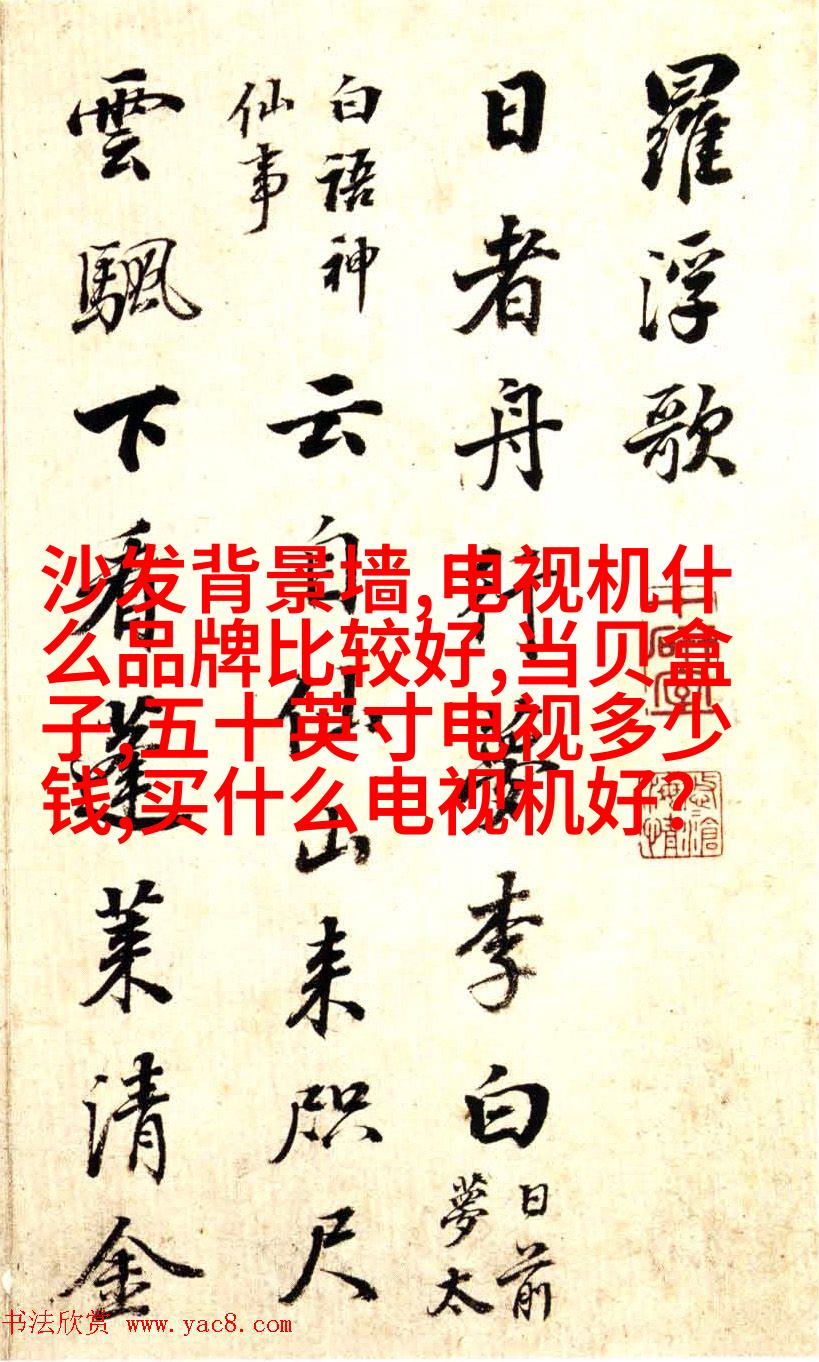 羅浮歌
日者舟行夢李白
日前
夢太
白語神
仙事
云自仙山来咫尺
雲颿下看蓬莱清金
沙发背景墙,电视机什
么品牌比较好,当贝盒
子,五十英寸电视多少
钱,买什么电视机好?
书法欣赏 www.yac8.com